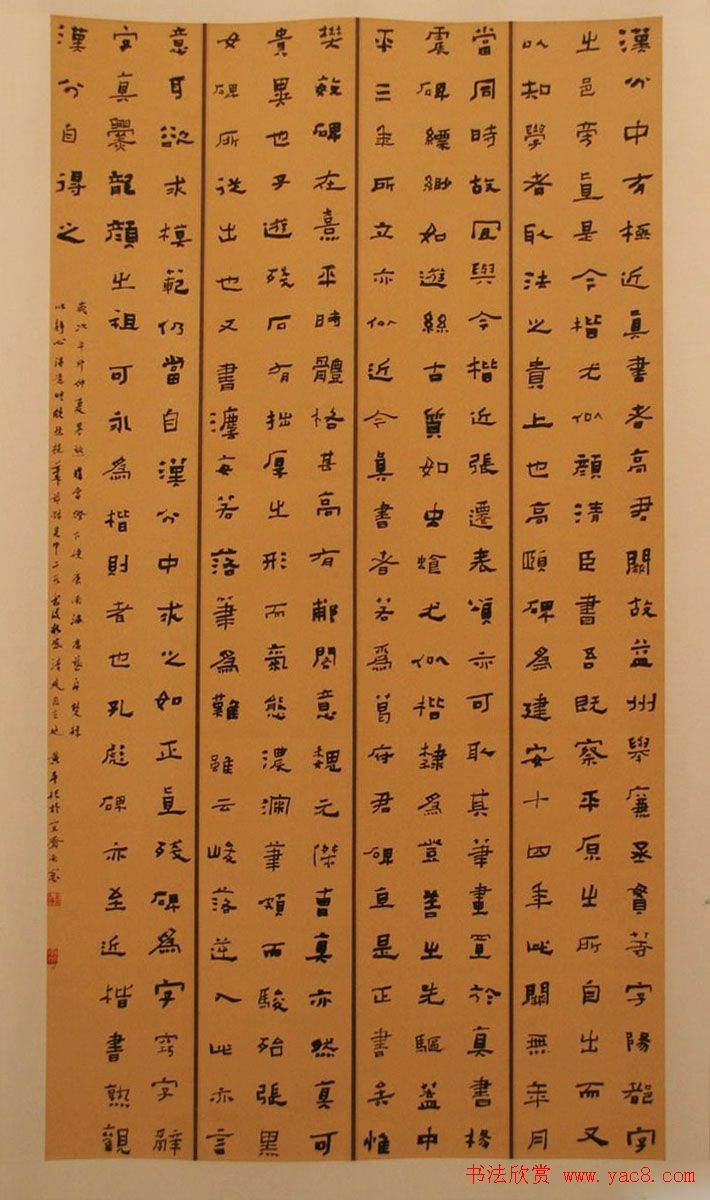 漢分中有極近真書者高君闕故益州舉廉丞貫等字陽都字
之邑旁直是今楷尤似顏清臣書吾既察平原之所自出而又
以知學者取法之貴上也高頤碑為建安十四年此闕無年月
當同時故宜與今楷近張遷表頌亦可取其筆畫置於真書楊
震碑縹緲如遊絲古質如虫蝕尤似楷隸為登善之先驅蓋中
平三年所立亦似近今真書者若為葛府君碑直是正書矣惟
樊敏碑在熹平時體格甚高有郙閣意魏元傑曹真亦然真可
貴異也子遊殘石有拙厚之形而氣態濃筆頗而駿殆張黑
女碑所從出也又書法每苦落筆為難雖云峻落逆入此亦言
意耳欲求模範仍當自漢分中求之如正直殘碑為字字辭
字真爨龍顏之祖可永為楷則者也孔彪碑亦至近楷書熟觀
漢分自得之
歲次辛卯仲夏燈下讀康南海廣藝舟雙楫
书法欣赏 www.yac8.com